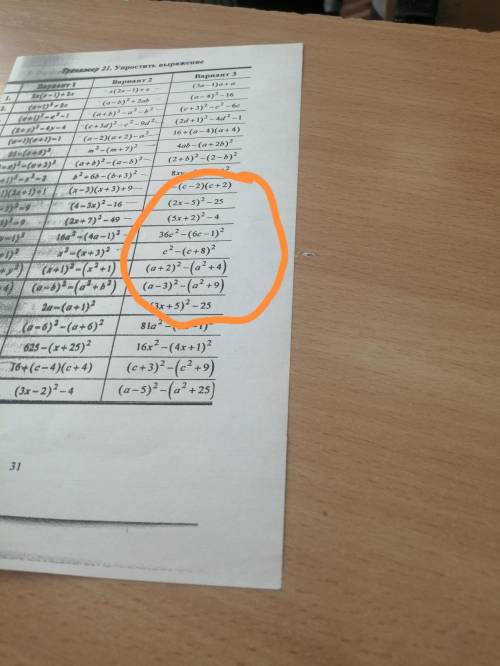 Тренажер 21. Упростить выражение
Вариант 1 Вариант 2 Вариант 3
1. 2a(x−1)+2a x(2x−1)+x (3a−1)a+a
(a+1)²+2a (a−b)²+2ab (a−4)²−16
(a+1)²−a²−1 (a+b)²−a²−b² (c+3)²−c²−6c
(2+y)²−4y−4 (c+3d)²−c²−9d² (2d+1)²−4d²−1
(a−1)(a+1)−1 (a−2)(a+2)−a² 16+(a−4)(a+4)
25−(5+x)² m²−(m+7)² 4ab−(a+2b)²
−a)²−(a+3)² (a+b)²−(a−b)² (2+b)²−(2−b)²
+1)²−x²−2 b²+6b−(b+3)² 8xy
1)(2x+1)+1 (x−3)(x+3)+9 −(c−2)(c+2)
−3)²−9 (4−3x)²−16 (2x−5)²−25
3)²−9 (2x+7)²−49 (5x+2)²−4
y−1)² 16a²−(4a−1)² 36c²−(6c−1)²
+1)² x²−(x+3)² c²−(c+8)²
+y²) (x+1)²−(x²+1) (a+2)²−(a²+4)
+4) (a−b)²−(a²+b²) (a−3)²−(a²+9)
2a−(a+1)² (3x+5)²−25
(a−6)²−(a+6)² 81a²−
625−(x+25)² 16x²−(4x+1)²
16+(c−4)(c+4) (c+3)²−(c²+9)
(3x−2)²−4 (a−5)²−(a²+25)
31